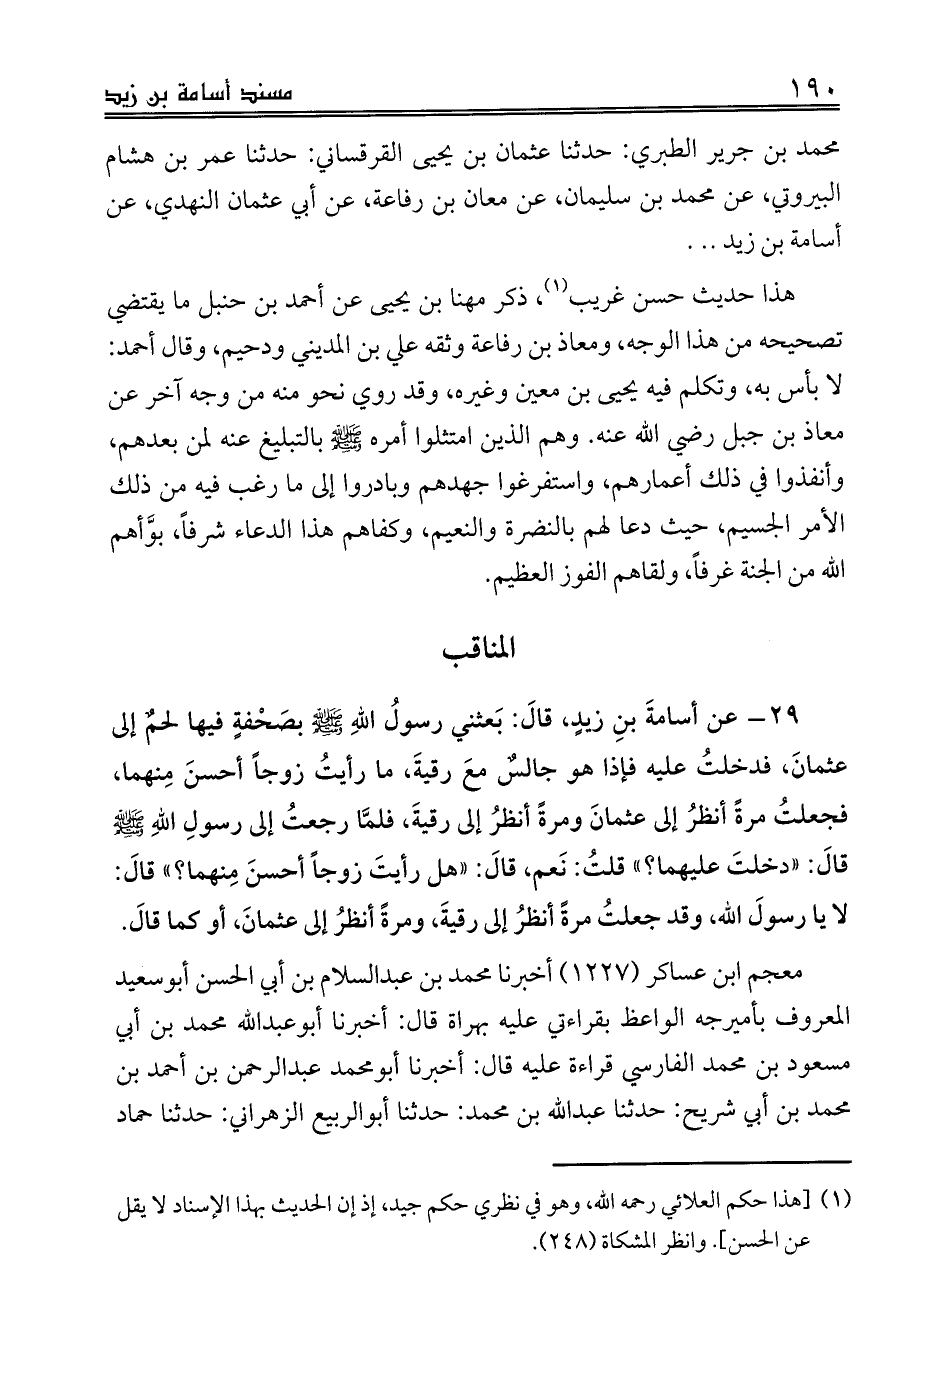 ١٩٠
مسند أسامة بن زيد
محمد بن جرير الطبري: حدثنا عثمان بن يحيى القرقساني: حدثنا عمر بن هشام
البيروتي، عن محمد بن سليمان، عن معان بن رفاعة، عن أبي عثمان النهدي، عن
أسامة بن زيد ...
هذا حديث حسن غريب(١)، ذكر مهنا بن يحيى عن أحمد بن حنبل ما يقتضي
تصحيحه من هذا الوجه، ومعاذ بن رفاعة وثقه علي بن المديني ودحيم، وقال أحمد:
لا بأس به، وتكلم فيه يحيى بن معين وغيره، وقد روي نحو منه من وجه آخر عن
معاذ بن جبل رضي الله عنه. وهم الذين امتثلوا أمره ﷺ بالتبليغ عنه لمن بعدهم،
وأنفذوا في ذلك أعمارهم، واستفرغوا جهدهم وبادروا إلى ما رغب فيه من ذلك
الأمر الجسيم، حيث دعا لهم بالنضرة والنعيم، وكفاهم هذا الدعاء شرفاً، بوَّأهم
الله من الجنة غرفاً، ولقاهم الفوز العظيم.
المناقب
٢٩- عن أسامةَ بنِ زيدٍ، قالَ: بَعثني رسولُ اللهِ ﷺ بصَحْفةٍ فيها لحمٌ إلى
عثمانَ، فدخلتُ عليه فإذا هو جالسٌ معَ رقيةَ، ما رأيتُ زوجاً أحسنَ مِنهما،
فجعلتُ مرةً أنظرُ إلى عثمانَ ومرةً أنظرُ إلى رقيةَ، فلمَّا رجعتُ إلى رسولِ اللهِ ﷺ
قالَ: «دخلتَ عليهما؟» قلتُ: نَعم، قالَ: «هل رأيتَ زوجاً أحسنَ مِنهما؟» قالَ:
لا يا رسولَ الله، وقد جعلتُ مرةً أنظرُ إلى رقيةَ، ومرةً أنظرُ إلى عثمانَ، أو كما قالَ.
معجم ابن عساكر (١٢٢٧) أخبرنا محمد بن عبدالسلام بن أبي الحسن أبوسعيد
المعروف بأميرجه الواعظ بقراءتي عليه بهراة قال: أخبرنا أبوعبدالله محمد بن أبي
مسعود بن محمد الفارسي قراءة عليه قال: أخبرنا أبومحمد عبدالرحمن بن أحمد بن
محمد بن أبي شريح: حدثنا عبدالله بن محمد: حدثنا أبوالربيع الزهراني: حدثنا حماد
(١) [هذا حكم العلائي رحمه الله، وهو في نظري حكم جيد، إذ إن الحديث بهذا الإسناد لا يقل
عن الحسن]. وانظر المشكاة (٢٤٨).